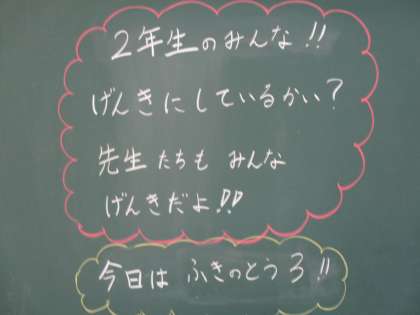 2年生のみんな!!
げんきにしているかい?
先生たちも みんな
げんきだよ!!
今日は ふきのとう3!!